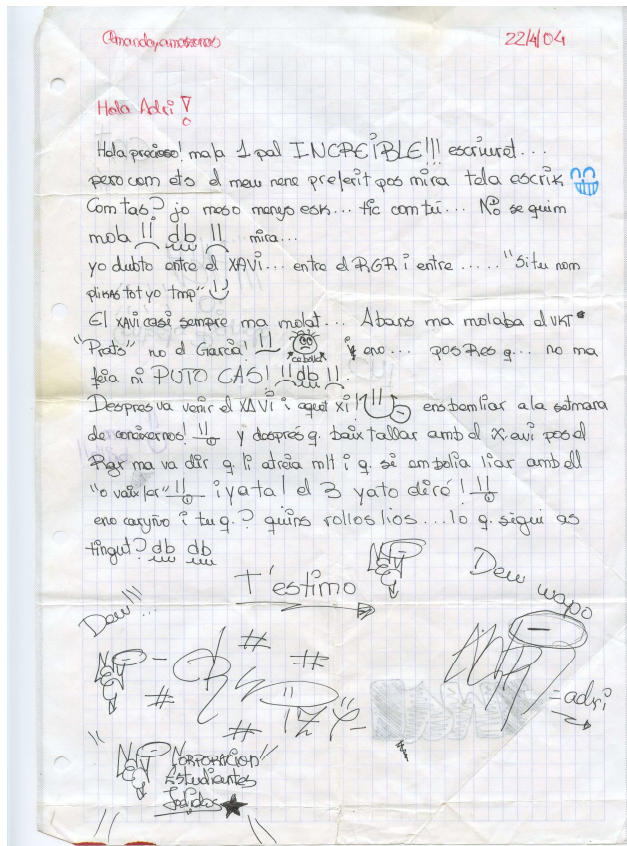 22/4/04
Hola Adri!
Hola precioso! mala 1 pal INCREÏBLE!!! escriuret...
pero com ets el meu nene preferit pos mira tela escrik
Com tas? jo maso menys esk... tic com tú... No se quim
mola !! db !! mira...
yo dubto entre el XAVi... entre el RGR i entre ...... "Si tu nom
plikas tot yo tmp"
El XAVi casi sempre ma molat... Abans ma molaba el VKT
"Prats" no el Garcia! !! cebolla eno... pos Res q... no ma
feia ni PUTO CAS! !! db !!
Despres va venir el XAVi i aquet xi! ens bem liar a la setmana
de coneixernos! !! y després q. baix tallar amb el X.avi pos el
Rgr ma va dir q. li atreia mlt i q. si em bolia liar amb ell
"o vaix fer" !! i yata! el 3 yato diré! !!
eno caryño i tu q.? quins rollos lios... lo q. sigui as
tingut? db db
T'estimo
Dew wapo
Dew!!!
=adri
CORPORACION
Estudiantes